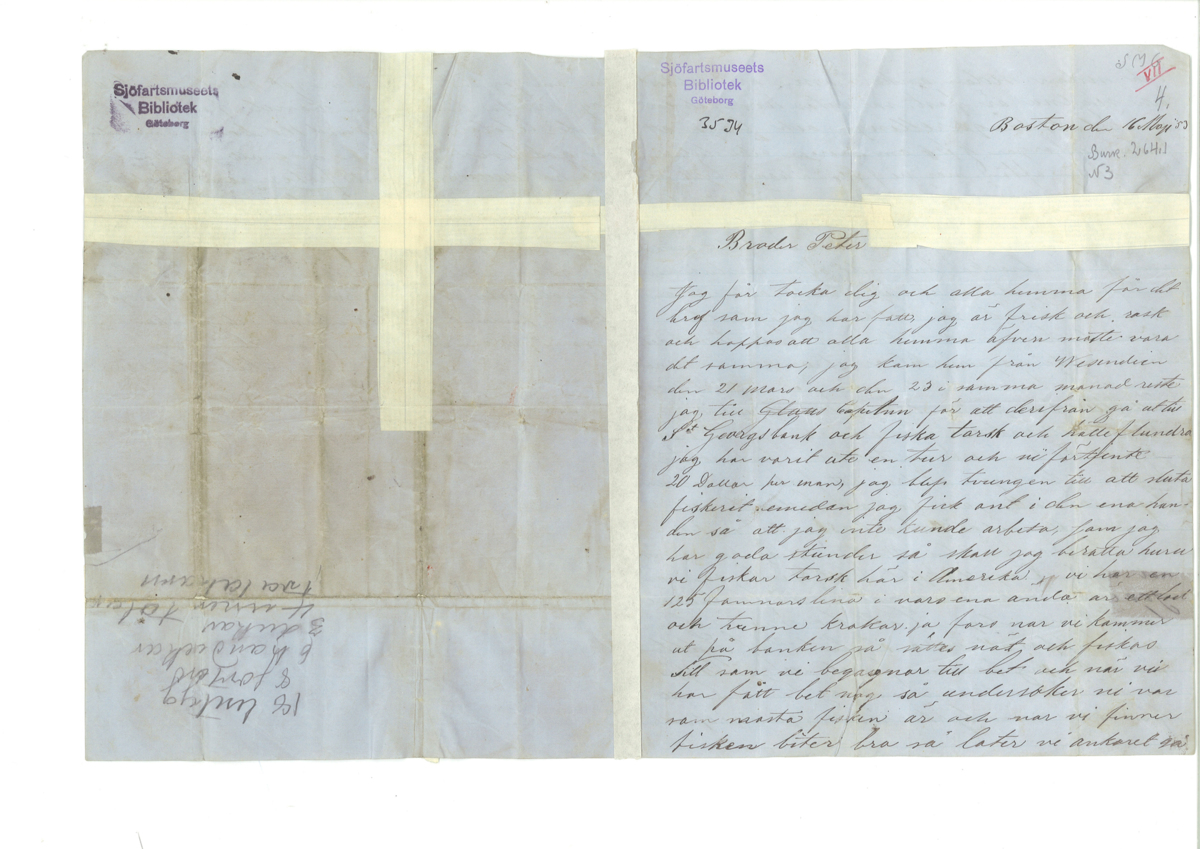 Sjöfartsmuseets
Bibliotek
Göteborg
18 lintyg
8 förkläd
6 handukar
3 dukar
4
två lakann
Sjöfartsmuseets
Bibliotek
Göteborg
3574
VII
4.
Boston den 16 Maji 53
2641
N3
Broder Peter
Jag får tacka dig och alla hemma för det
bref som jag har fått, jag är frisk och rask
och hoppas att alla hemma äfven måste vara
det samma, jag kom hem från Westindien
den 21 mars och den 23 i samma månad reste
jag till för att derifrån gå ut till
St Georgsbank och fiska torsk och hälleflundra
jag har varit ute en tur och vi förtjente
20 Dollar per man, jag blef tvungen till att sluta
fiskerit emedan jag fick ont i den ena han-
den så att jag inte kunde arbeta, som jag
har goda stunder så skall jag berätta huru
vi fiskar torsk här i Amerika, vi har en
125 famnars lina i vars ena ända är ett lod
och tvenne krokar, ja fors när vi kommer
ut på banken så sättes nät och fiskas
sill som vi begagnar till bet och när vi
har fått bet nog så undersöker vi var
som mästa fisken är och nar vi finner
fisken biter bra så låter vi ankaret gå